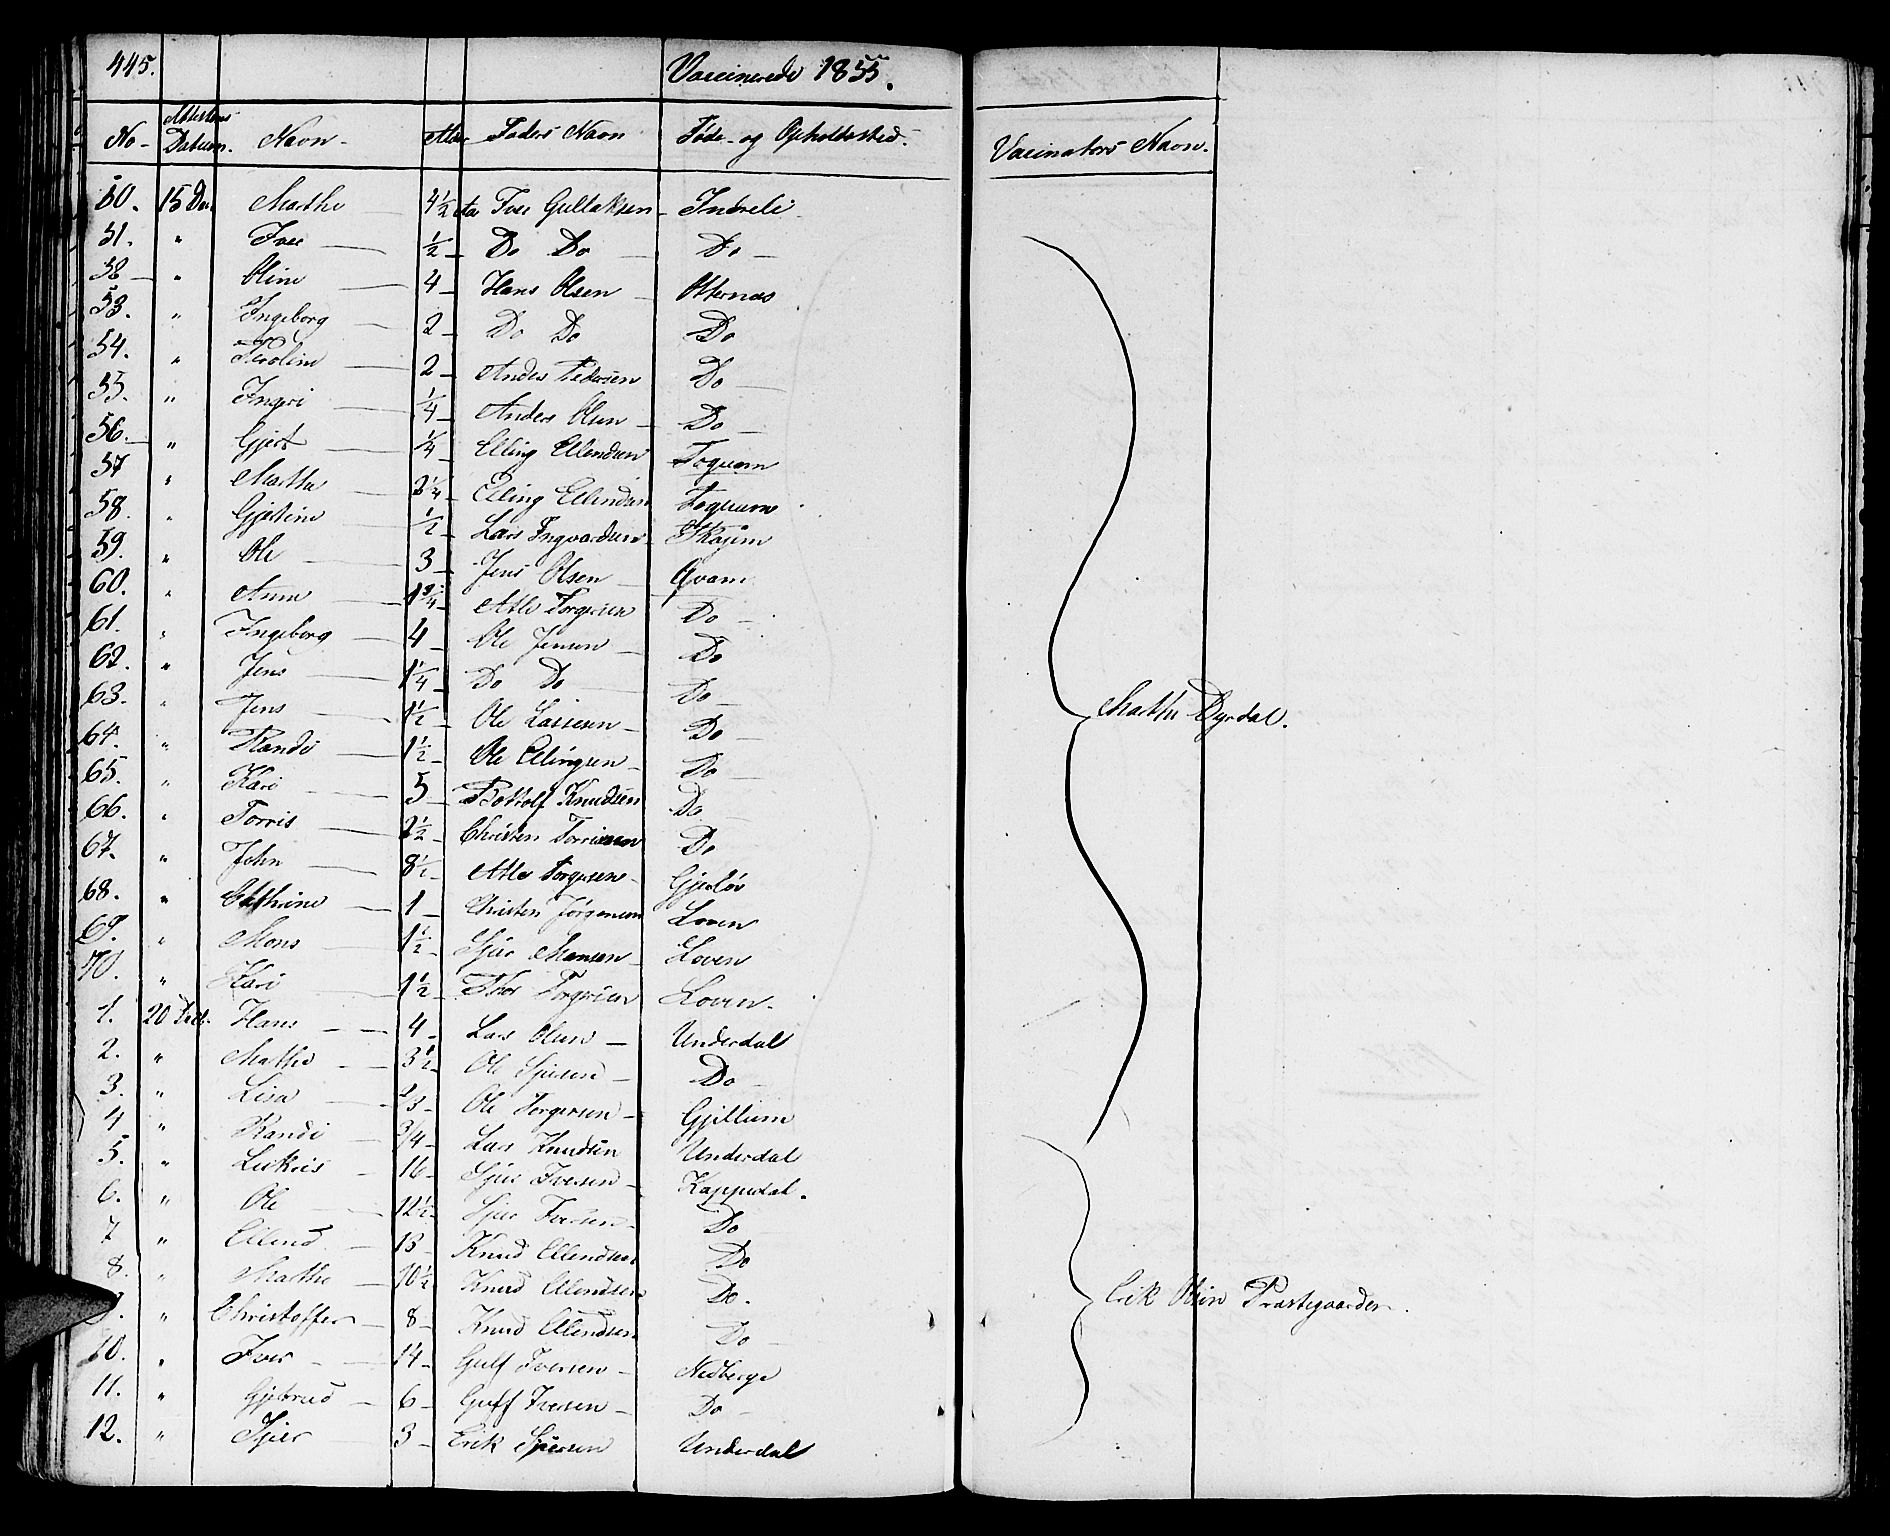 445. Vaccinerede 1855.
No - Attestens Datum. Navn - Alder Faders Navn Føde- og Opholdssted. Vaccinators Navn.
50. 15 Dec Marthe 4½ Aar Iver Guttaksen Indreli
51. " Iver ½ Do Do Do
52 " Oline 4 Hans Olsen Otternæs
53. " Ingeborg 2 Do Do Do
54. " Tholine 2 Andes Pedersen Do
55. " Ingeri ¼ Anders Olsen Do
56. " Gjert ¼ Elling Ellendsen Toqvam
57 " Martha 2¼ Elling Ellendsen Toqvam
58. " Gjertine ½ Lars Ingvardsen Skajem
59. " Ole 3 Jens Olsen Qvam
60. " Anna 1¾ Atle Torgersen Do
61. " Ingeborg 4 Ole Jensen Do
62. " Jens 1¼ Do Do Do
63. " Jens 1½ Ole Lassesen Do
Marthe Dyrdal.
64. " Randi 1½ Ole Ellingsen Do
65. " Kari 5 Bottolf Knudsen Do
66. " Torris 2½ Christen Torrissen Do
67. " John 8½ Atle Torgersen Gjerløv
68. " Cathrine 1 Christen Jørgensen Loven
69. " Mons 1½ Sjur Monsen Loven
70. " Kari 1½ Thor Torgersen Loven
1. 20 Dec. Hans 4 Lars Olsen Underdal
2. " Marthe 3½ Ole Sjursen Do
3. " Lisa 2/3 Ole Torgersen Gjillum
4 " Randi ¾ Lars Knudsen Underdal
5. " Lukris 16 Sjur Iversen Kappedal.
6. " Ole 12½ Sjur Iversen Do
7 " Ellend 13 Knud Ellendsen Do
8. " Marthe 10½ Knud Ellendsen Do.
9. " Christoffer 8 Knud Ellendsen Do
Erik Olsen Præstegaarden.
10. " Iver 14 Gulf Iversen Nedberge
11. " Gjertrud 6 Gulf Iversen Do
12. " Sjur 3 Erik Sjursen Underdal